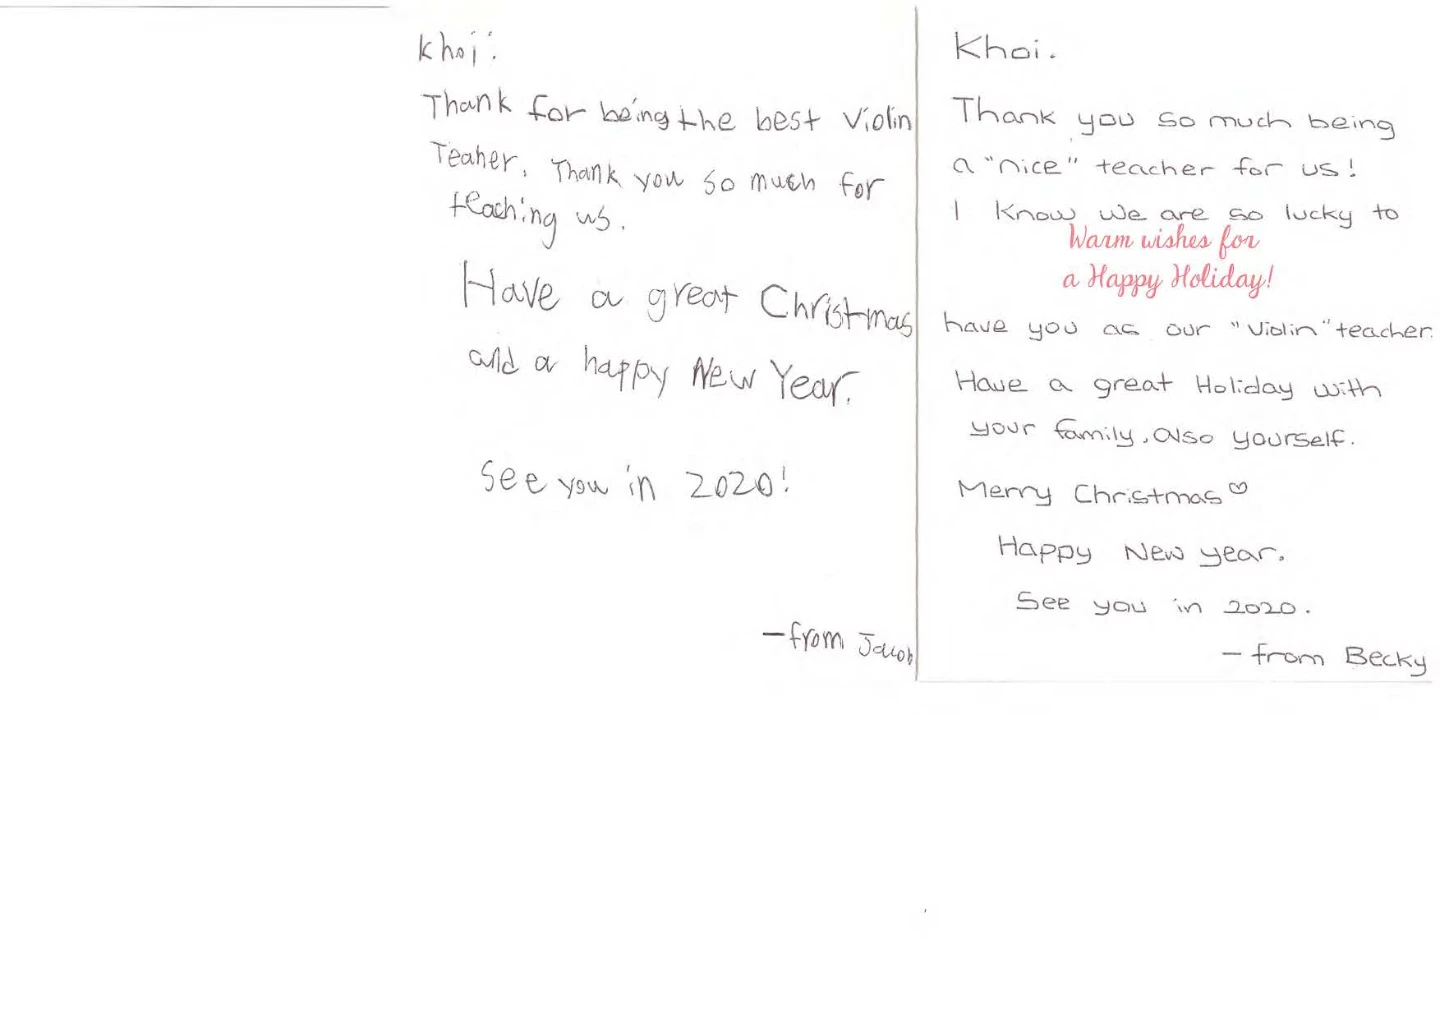 Khoi.
Thank for being the best Violin
Teaher. Thank you so much for
teaching us.
Have a great Christmas
and a happy New Year.
See you in 2020!
—from Jacob
Khoi.
Thank you so much being
a "nice" teacher for us!
I know we are so lucky to
Warm wishes for
a Happy Holiday!
have you as our "Violin" teacher.
Have a great Holiday with
your family, also yourself.
Merry Christmas♡
Happy New year.
See you in 2020.
— from Becky